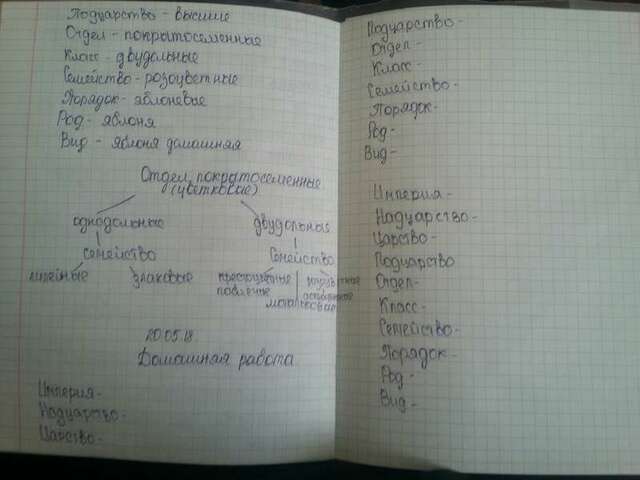 Подцарство - высшие
Отдел - покрытосеменные
Класс - двудольные
Семейство - розоцветные
Порядок - яблоневые
Род - яблоня
Вид - яблоня домашняя
Отдел покрытосеменные
(цветковые)
однодольные двудольная
семейство Семейство
лилейные злаковые крестоцветные
пасленые
мотыльковые
20.05.18.
Домашная работа.
Империя -
Надцарство -
Царство -
Подцарство -
Отдел -
Класс -
Семейство -
Порядок -
Род -
Вид -
Империя -
Надцарство -
Царство -
Подцарство
Отдел -
Класс -
Семейство -
Порядок -
Род -
Вид -